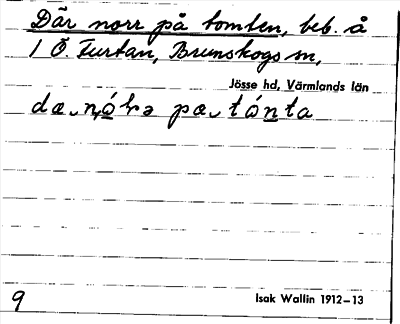 Där norr på tomten, beb. å
1 Ö. Furtan, Brunskogs sn,
Jösse hd, Värmlands län
dæ nórə pæ tónta
9
Isak Wallin 1912–13